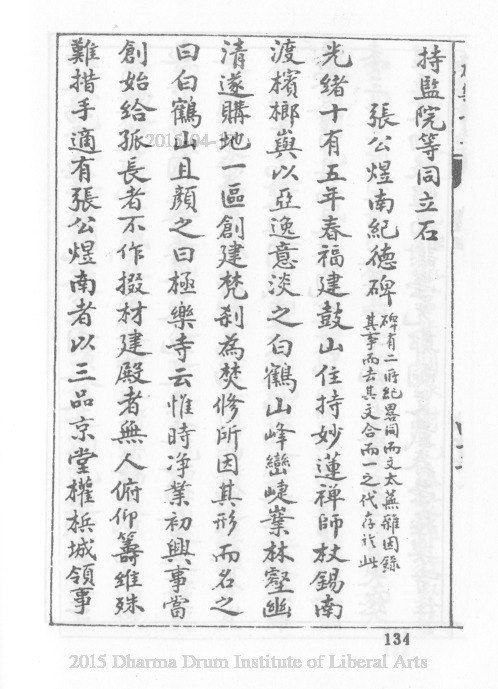 持監院等同立石
張公煜南紀德碑
碑有二所紀畧同而文太蕪雜因錄
其事而去其文合而一之代存於此
光緒十有五年春福建鼓山住持妙蓮禪師杖錫南
渡檳榔嶼以亞逸意淡之白鶴山峰巒崨嶪林壑幽
清遂購地一區創建梵剎為焚修所因其形而名之
曰白鶴山且顏之曰極樂寺云惟時净業初興事當
創始給孤長者不作掇材建殿者無人俯仰籌維殊
難措手適有張公煜南者以三品京堂權梹城領事
134
2015-04-
2015 Dharma Drum Institute of Liberal Arts